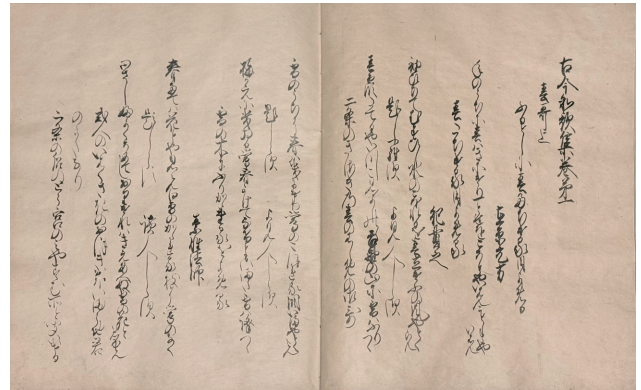 古今和歌集巻第一
春哥上
ふるとしに春たちける日よめる
在原元方
年のうちに春はきにけり一とせをこそとやいはんことしとやいはん
春たちける日よめる
紀貫之
袖ひちてむすひし水のこほれるを春立けふの風やとくらん
題しらす　よみ人しらす
春霞たてるやいつこみよしのゝ吉野の山に雪はふりつゝ
二条のきさきの春のはしめの御うた
雪のうちに春はきにけり鶯のこほれる泪今やとくらん
題しらす　よみ人しらす
梅かえにきゐる鶯春かけてなけともいまた雪はふりつゝ
雪の木にふりかゝれるをよめる
素性法師
春たては花とやみらん白雪のかゝれる枝に鶯のなく
題しらす　読人しらす
心さしふかくそめてしおりけれはきえあへぬ雪の花とみゆらん
或人のいはくさきのおほきおほいまうち君
のうたなり
二条の后のとう宮のみやすん所ときこえける